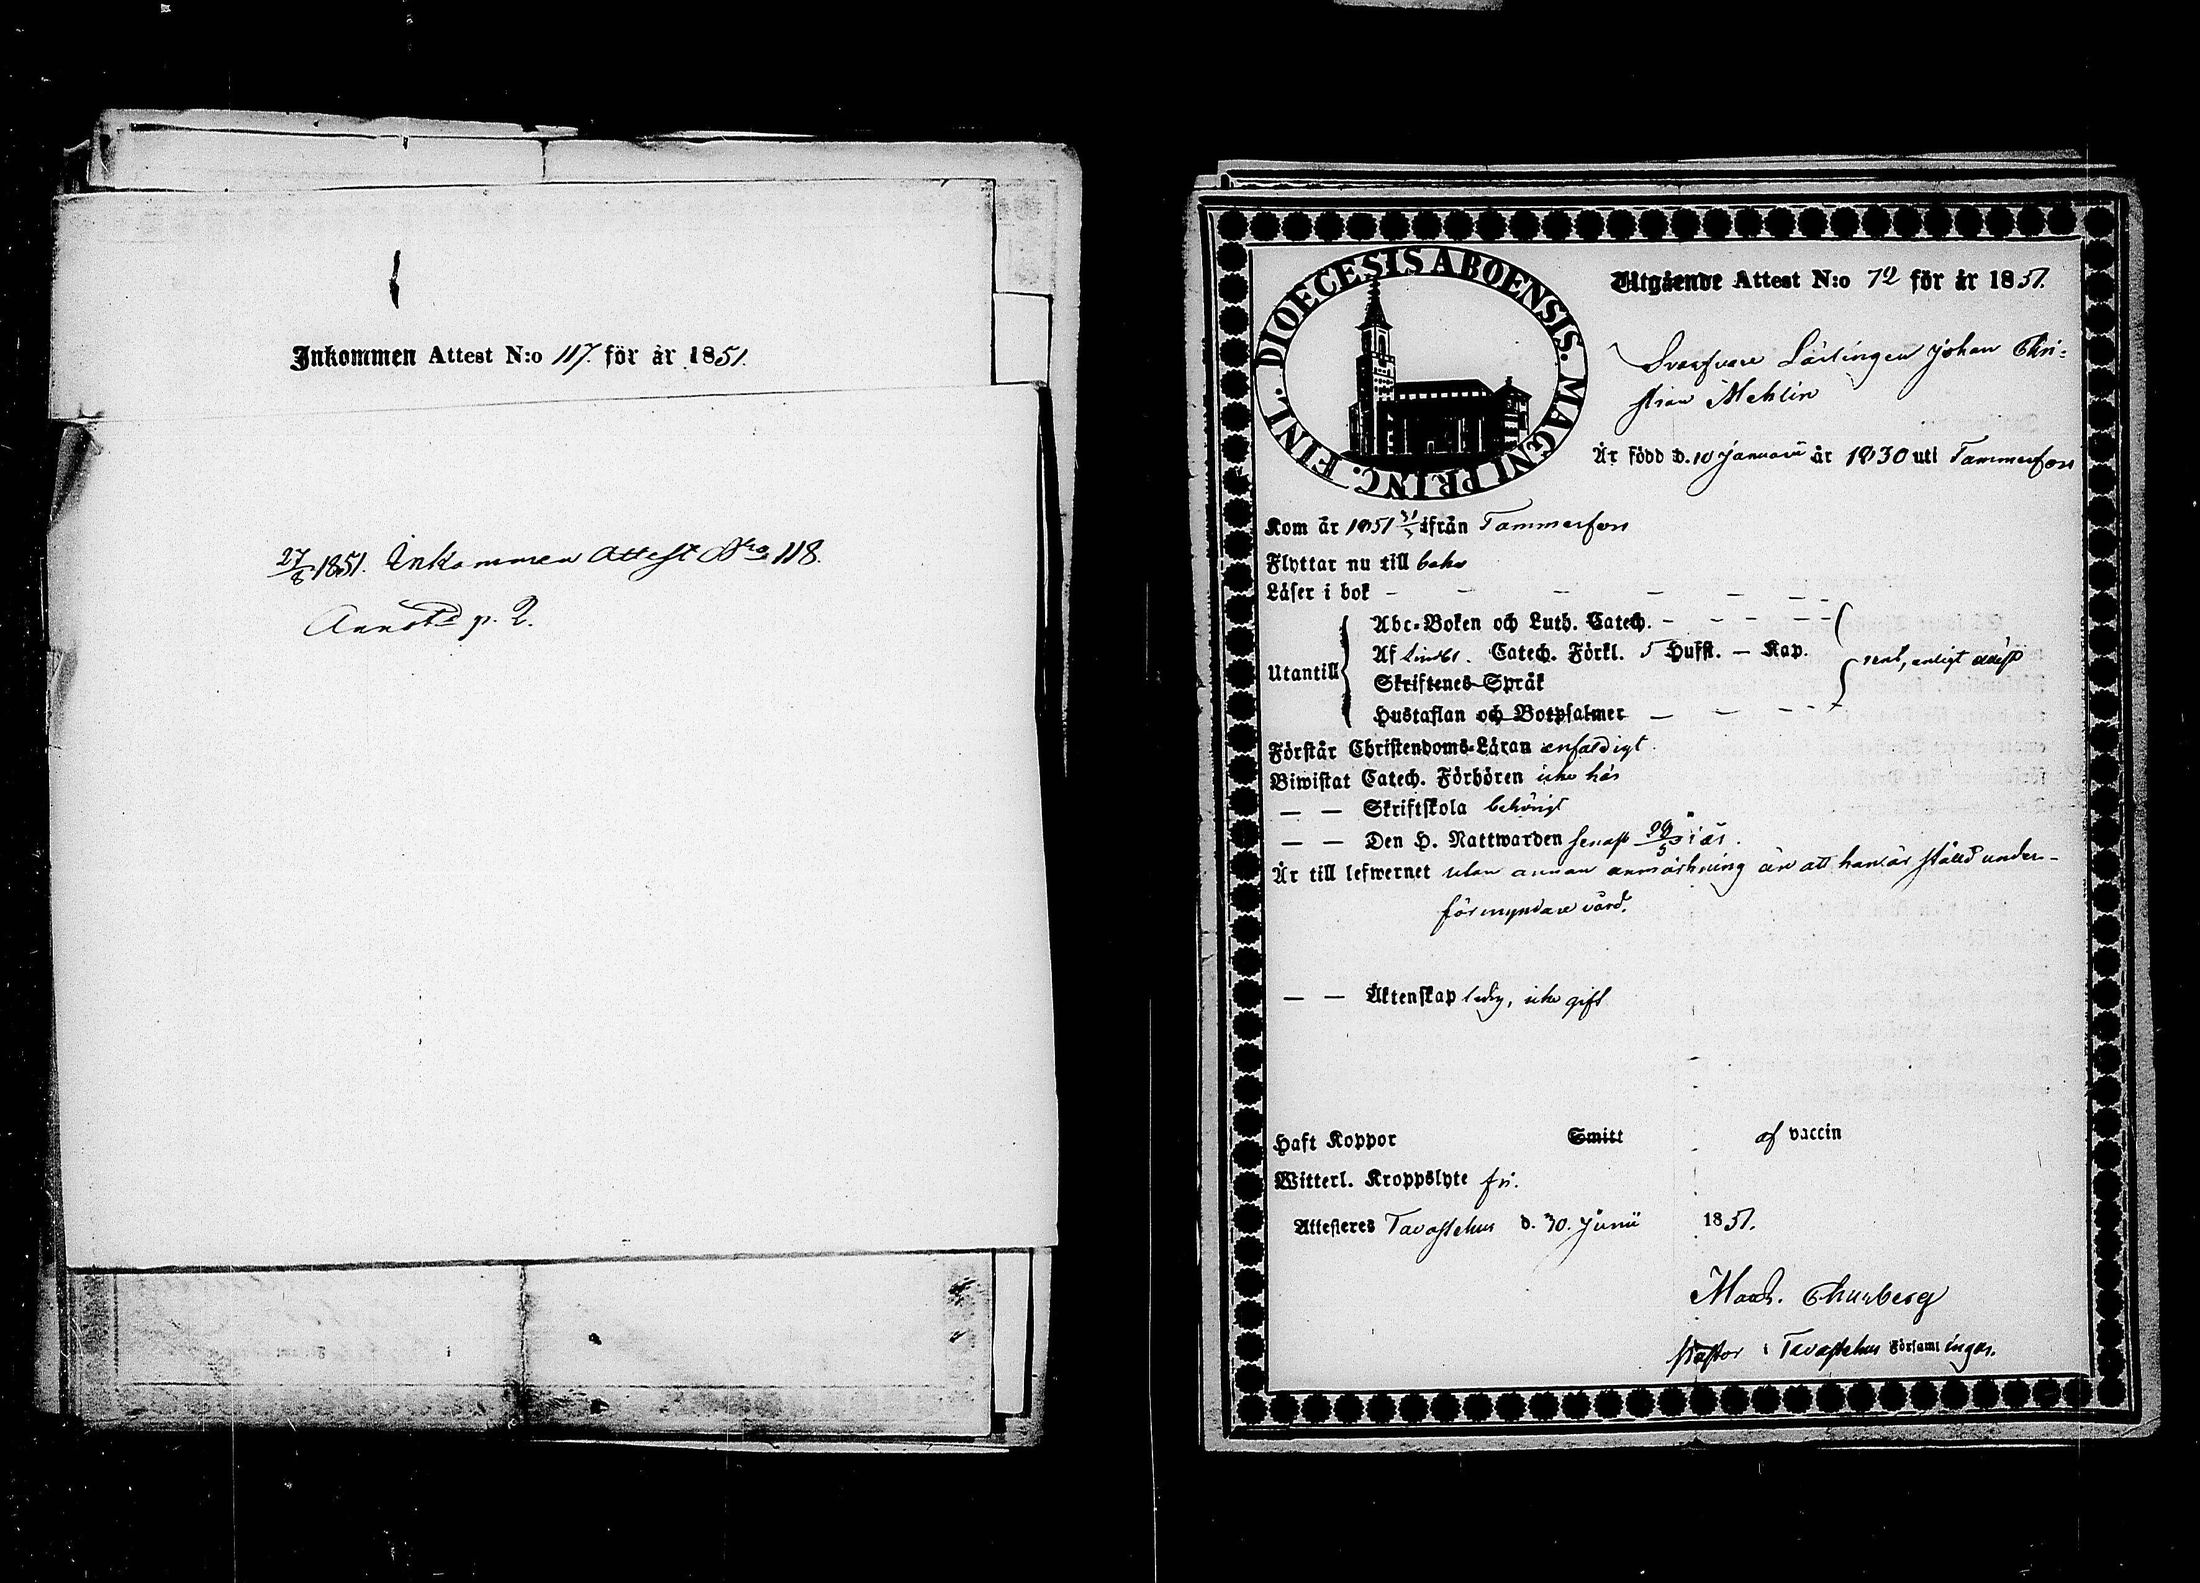 Inkommen Attest N:o 117. för år 1851.
27/8 1851. Inkommen Attest Nro 118.
Annotd p. 2.
FINL. DIOECESIS ABOENSIS. MAGNI PRINC.
Utgående Attest N:o 72 för år 1851.
Svarfvare Lärlingen Johan Chri-
stian Mehlin
Är född d. 10 Januarii år 1830 uti Tammerfors
Kom år 1851 ifrån Tammerfors
Flyttar nu till baka
Läser i bok - - - - - - -
Abc-Boken och Luth. Catech. - - - - -
Utantill
Af Catech. Förkl. 5 Hufst. - Kap.
enligt attest
Skriftenes Språk
Hustaflan och Botpsalmer - - - - -
Förstår Christendoms-Läran enfaldigt
Biwistat Catech. Förhören icke här
— — Skriftskola behörigt
— — Den H. Nattwarden senast i år.
Är till lefwernet utan annan anmärkning än att han är ställd under-
förmyndare vård.
— — Äktenskap ledig, icke gift
Haft Koppor Smitt af vaccin
Witterl. Kroppslyte fri.
Attesteras Tavastehus d. 30. Junii 1851.
Thurberg
Pastor i Tavastehus Församlingar.